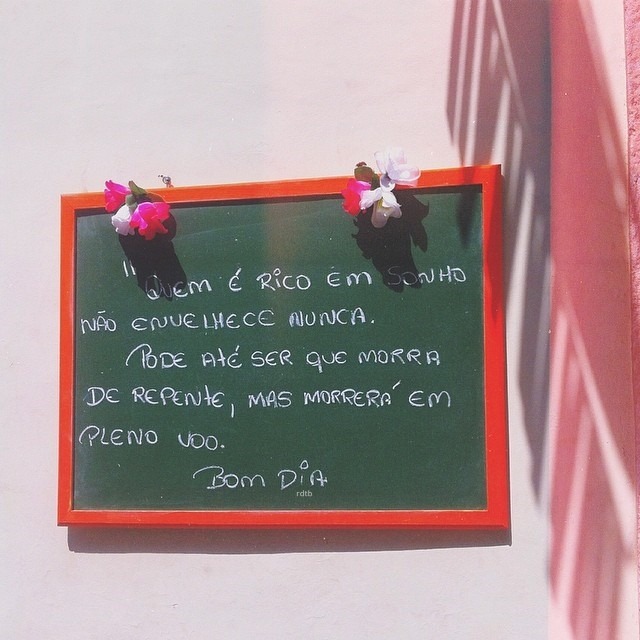 "QUEM É RICO EM SONHO
NÃO ENVELHECE NUNCA.
PODE ATÉ SER QUE MORRA
DE REPENTE, MAS MORRERÁ EM
PLENO VOO.
BOM DIA
rdtb